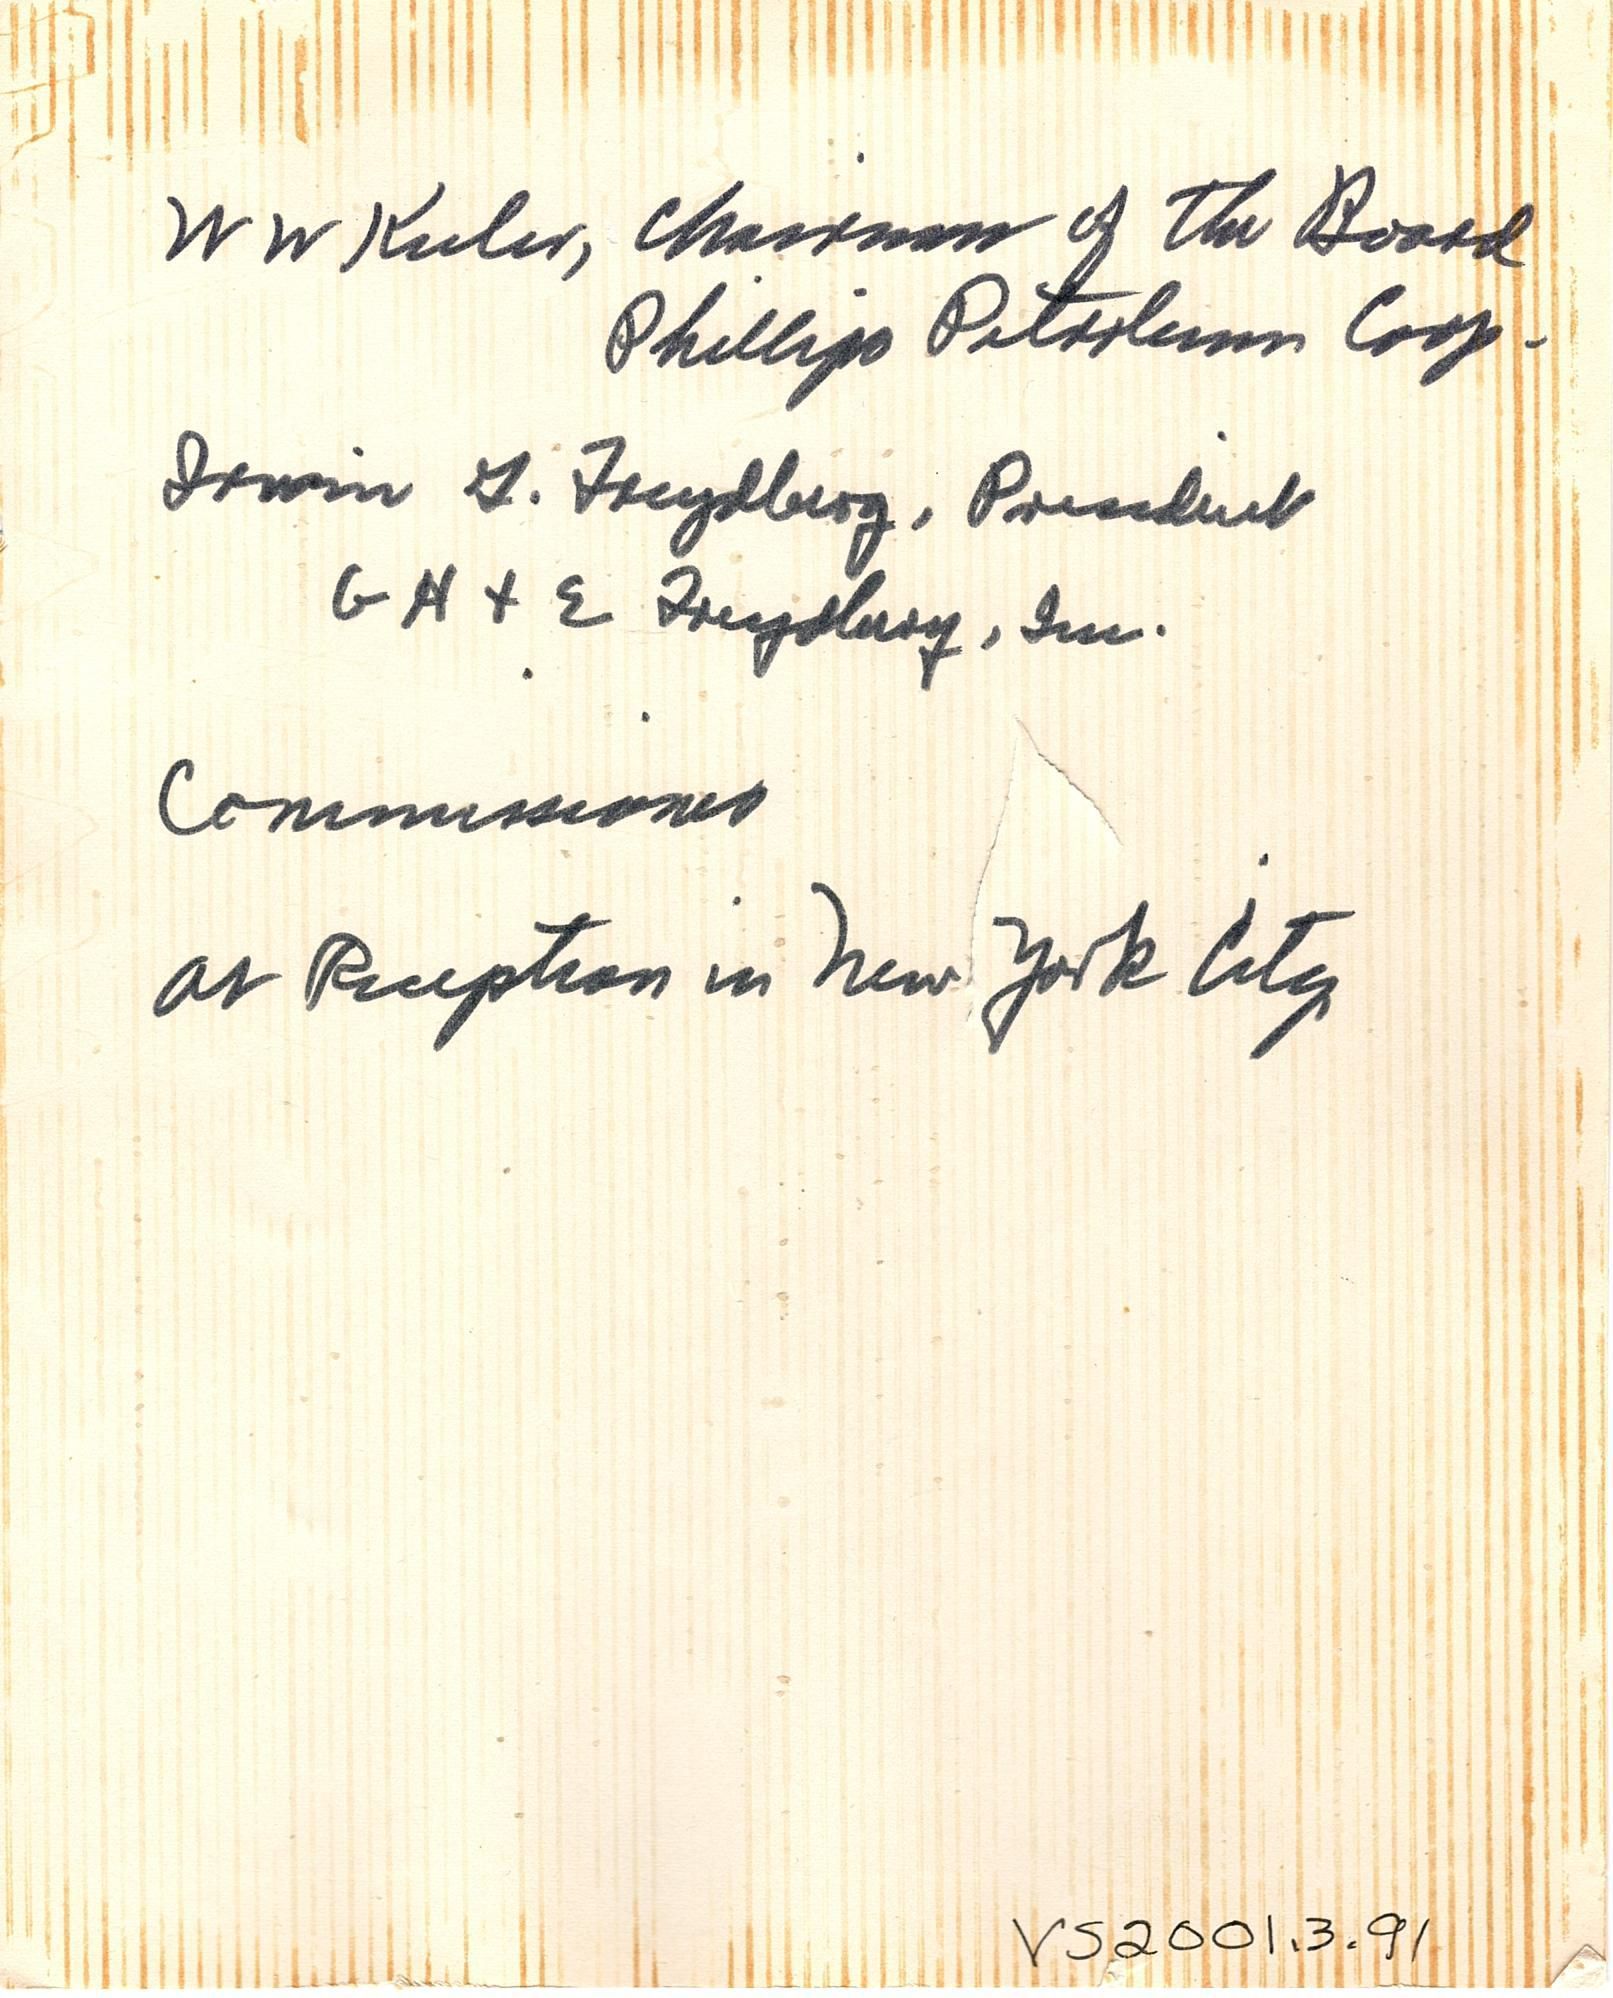 W W Keeler, Chairman of the Board
Phillips Petroleum Corp.
Irwin G. Freydberg, President
G H + E Freydberg, Inc.
Commissioner
at Reception in New York City
VS2001.3.91